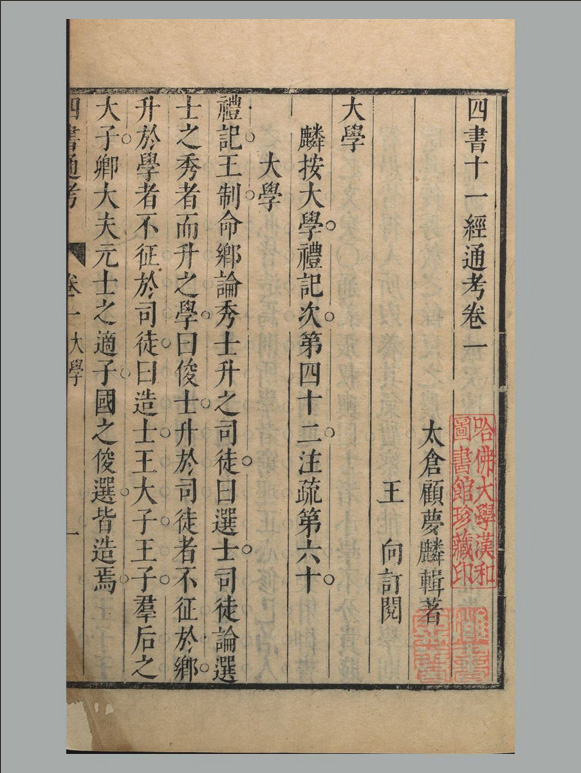 四書十一經通考卷一
太倉顧夢麟輯著
王　向訂閱
大學
麟按大學禮記次第四十二注疏第六十
大學
禮記王制命鄉論秀士升之司徒曰選士司徒論選
士之秀者而升之學曰俊士升於司徒者不征於鄉
升於學者不征於司徒曰造士王大子王子羣后之
大子卿大夫元士之適子國之俊選皆造焉
四書通考　卷一大學　一
哈佛大學漢和
圖書館珍藏印